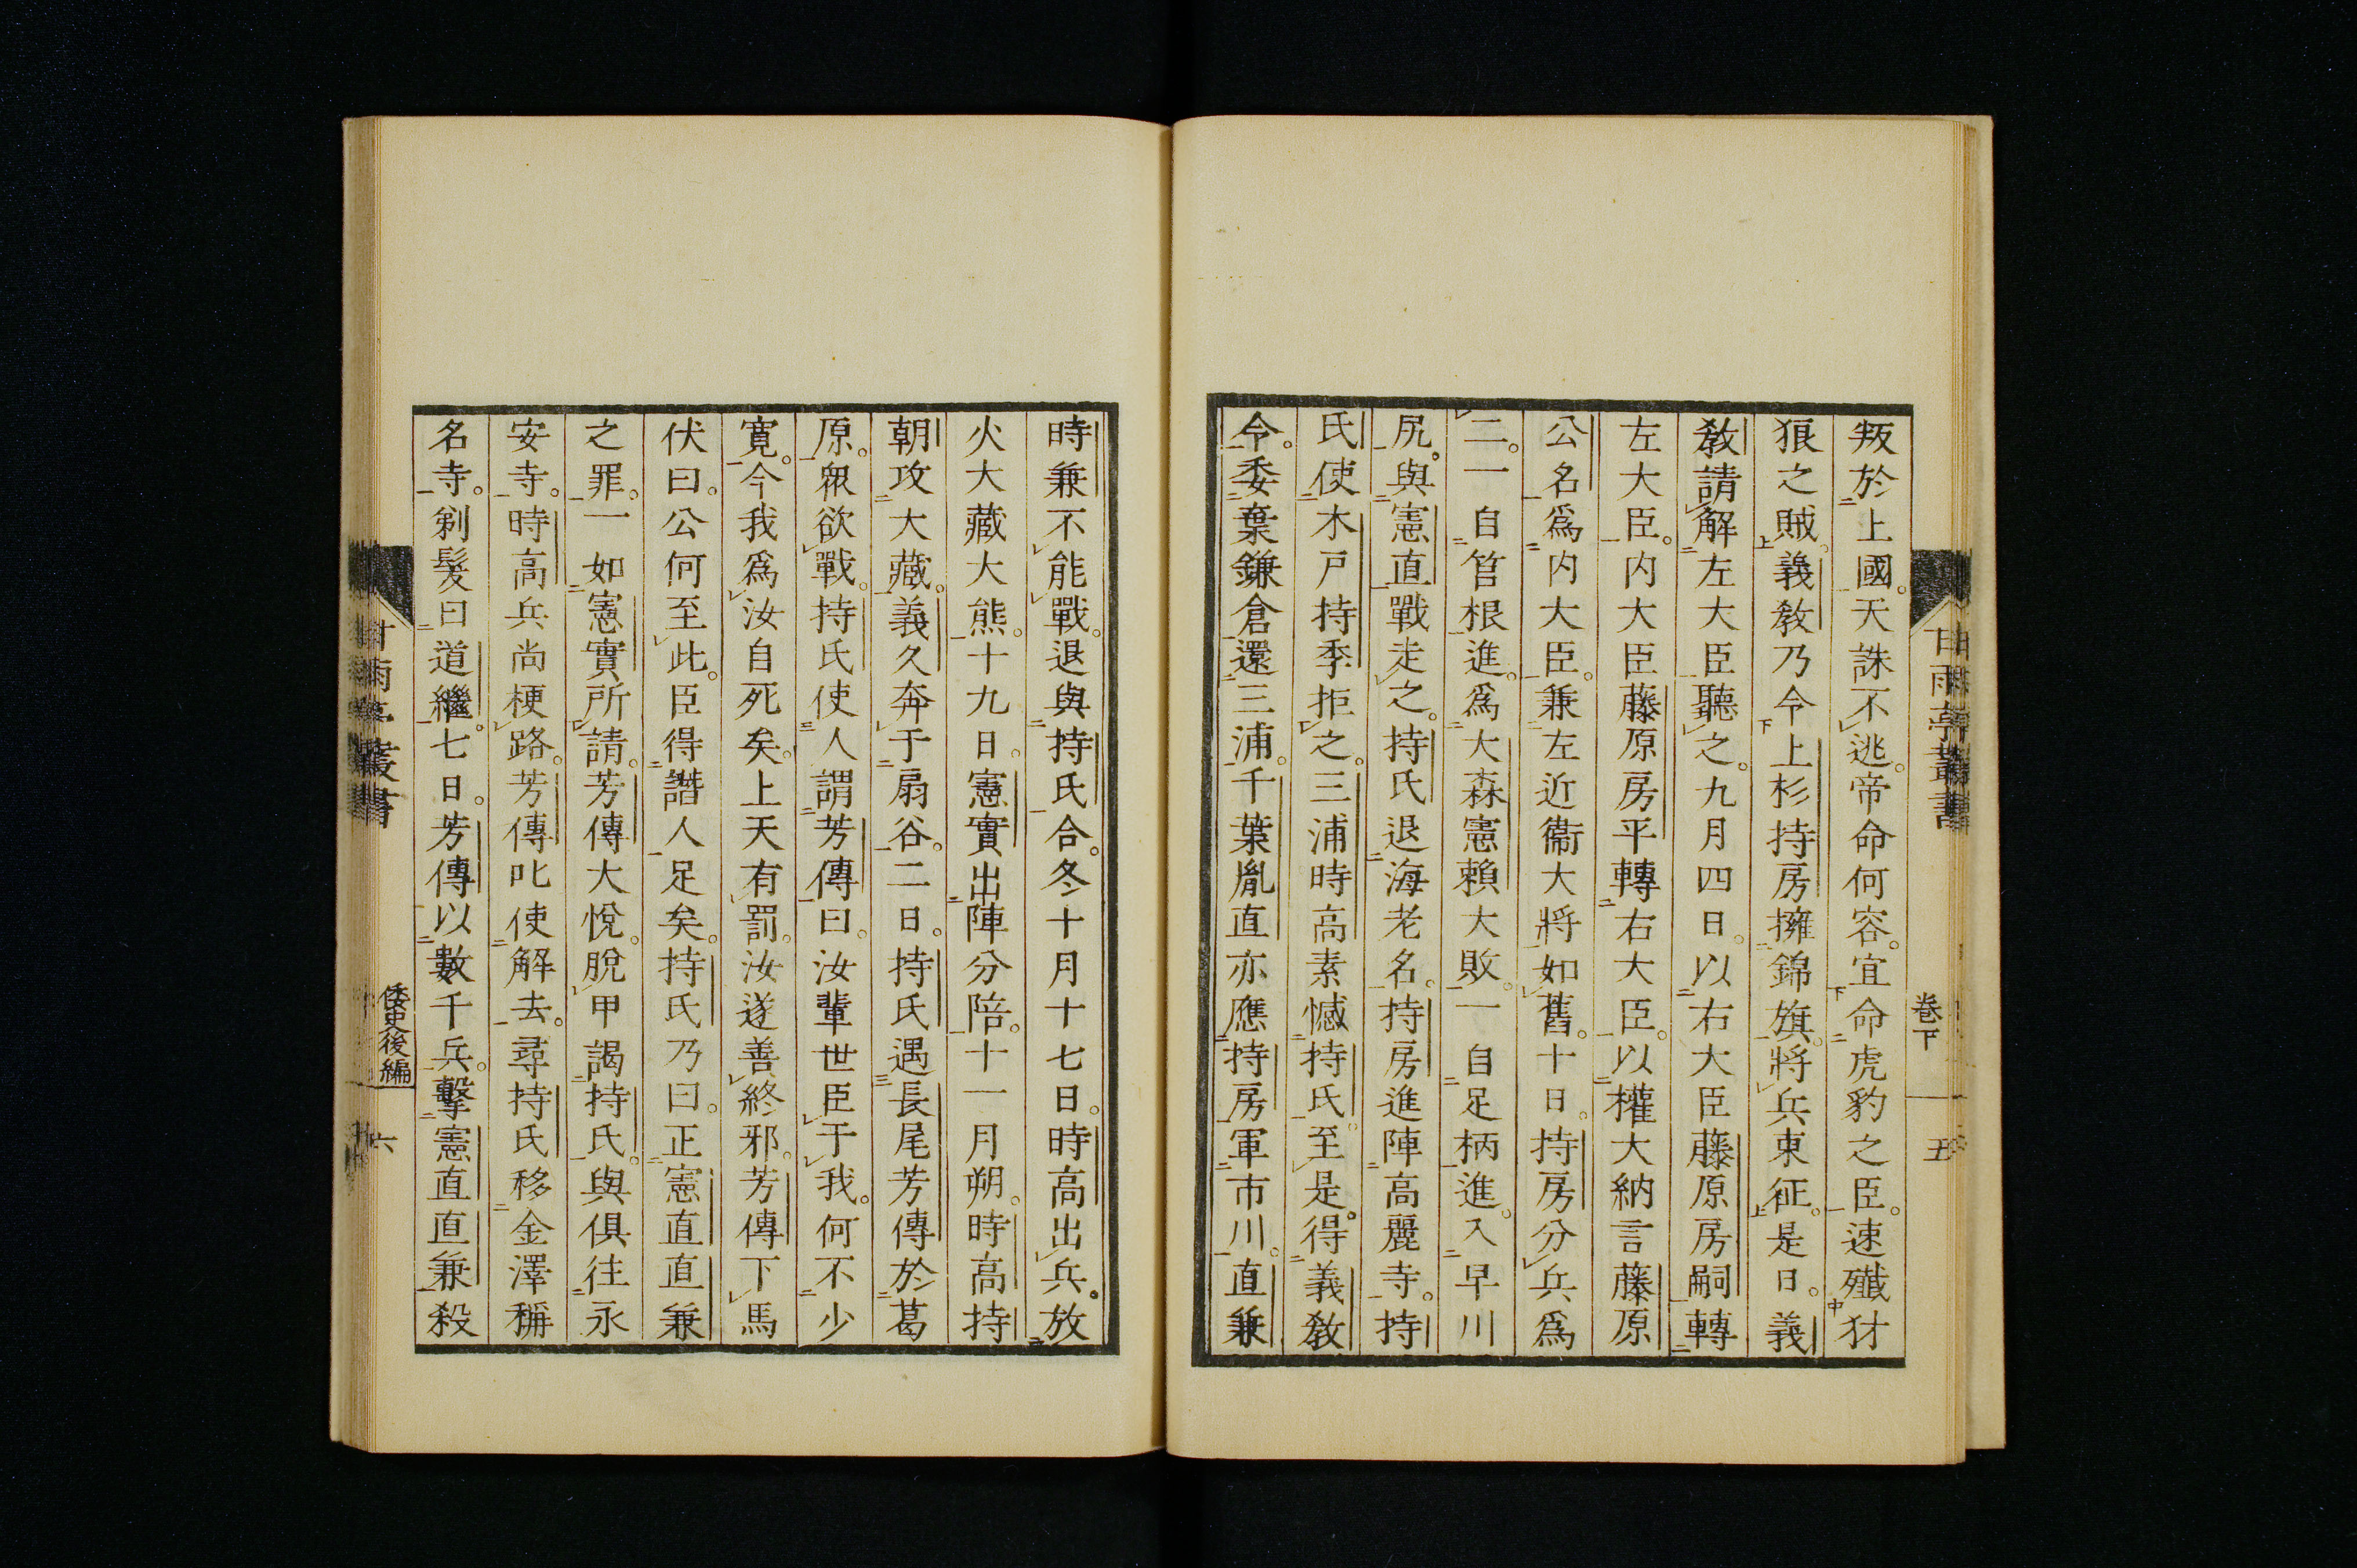 叛於上國。天誅不逃。帝命何容。宜命虎豹之臣。速殲犲
狼之賊。義教乃令上杉持房擁錦旗。將兵東征。是日。義
教請解左大臣聽之。九月四日。以右大臣藤原房嗣轉
左大臣。内大臣藤原房平轉右大臣。以權大納言藤原
公名爲内大臣。兼左近衞大將如舊。十日。持房分兵爲
二。一自筥根進。爲大森憲賴大敗。一自足柄進。入早川
尻。與憲直戰走之。持氏退海老名。持房進陣高麗寺。持
氏使木戸持季拒之。三浦時高素憾持氏。至是。得義教
令。委棄鎌倉還三浦。千葉胤直亦應持房軍市川。直兼
甘雨亭叢書
卷下
五
時兼不能戰。退與持氏合。冬十月十七日。時高出兵。放
火大藏大熊。十九日。憲實出陣分陪。十一月朔。時高持
朝攻大藏。義久奔于扇谷。二日。持氏遇長尾芳傳於葛
原。衆欲戰。持氏使人謂芳傳曰。汝輩世臣于我。何不少
寬。今我爲汝自死矣。上天有罰。汝遂善終邪。芳傳下馬
伏曰。公何至此。臣得譖人足矣。持氏乃曰。正憲直直兼
之罪。一如憲實所請。芳傳大悅。脫甲謁持氏。與俱往永
安寺。時高兵尚梗路。芳傳叱使解去。尋持氏移金澤稱
名寺。剃髮曰道繼。七日。芳傳以數千兵。擊憲直直兼殺
甘雨亭叢書
倭史後編
六